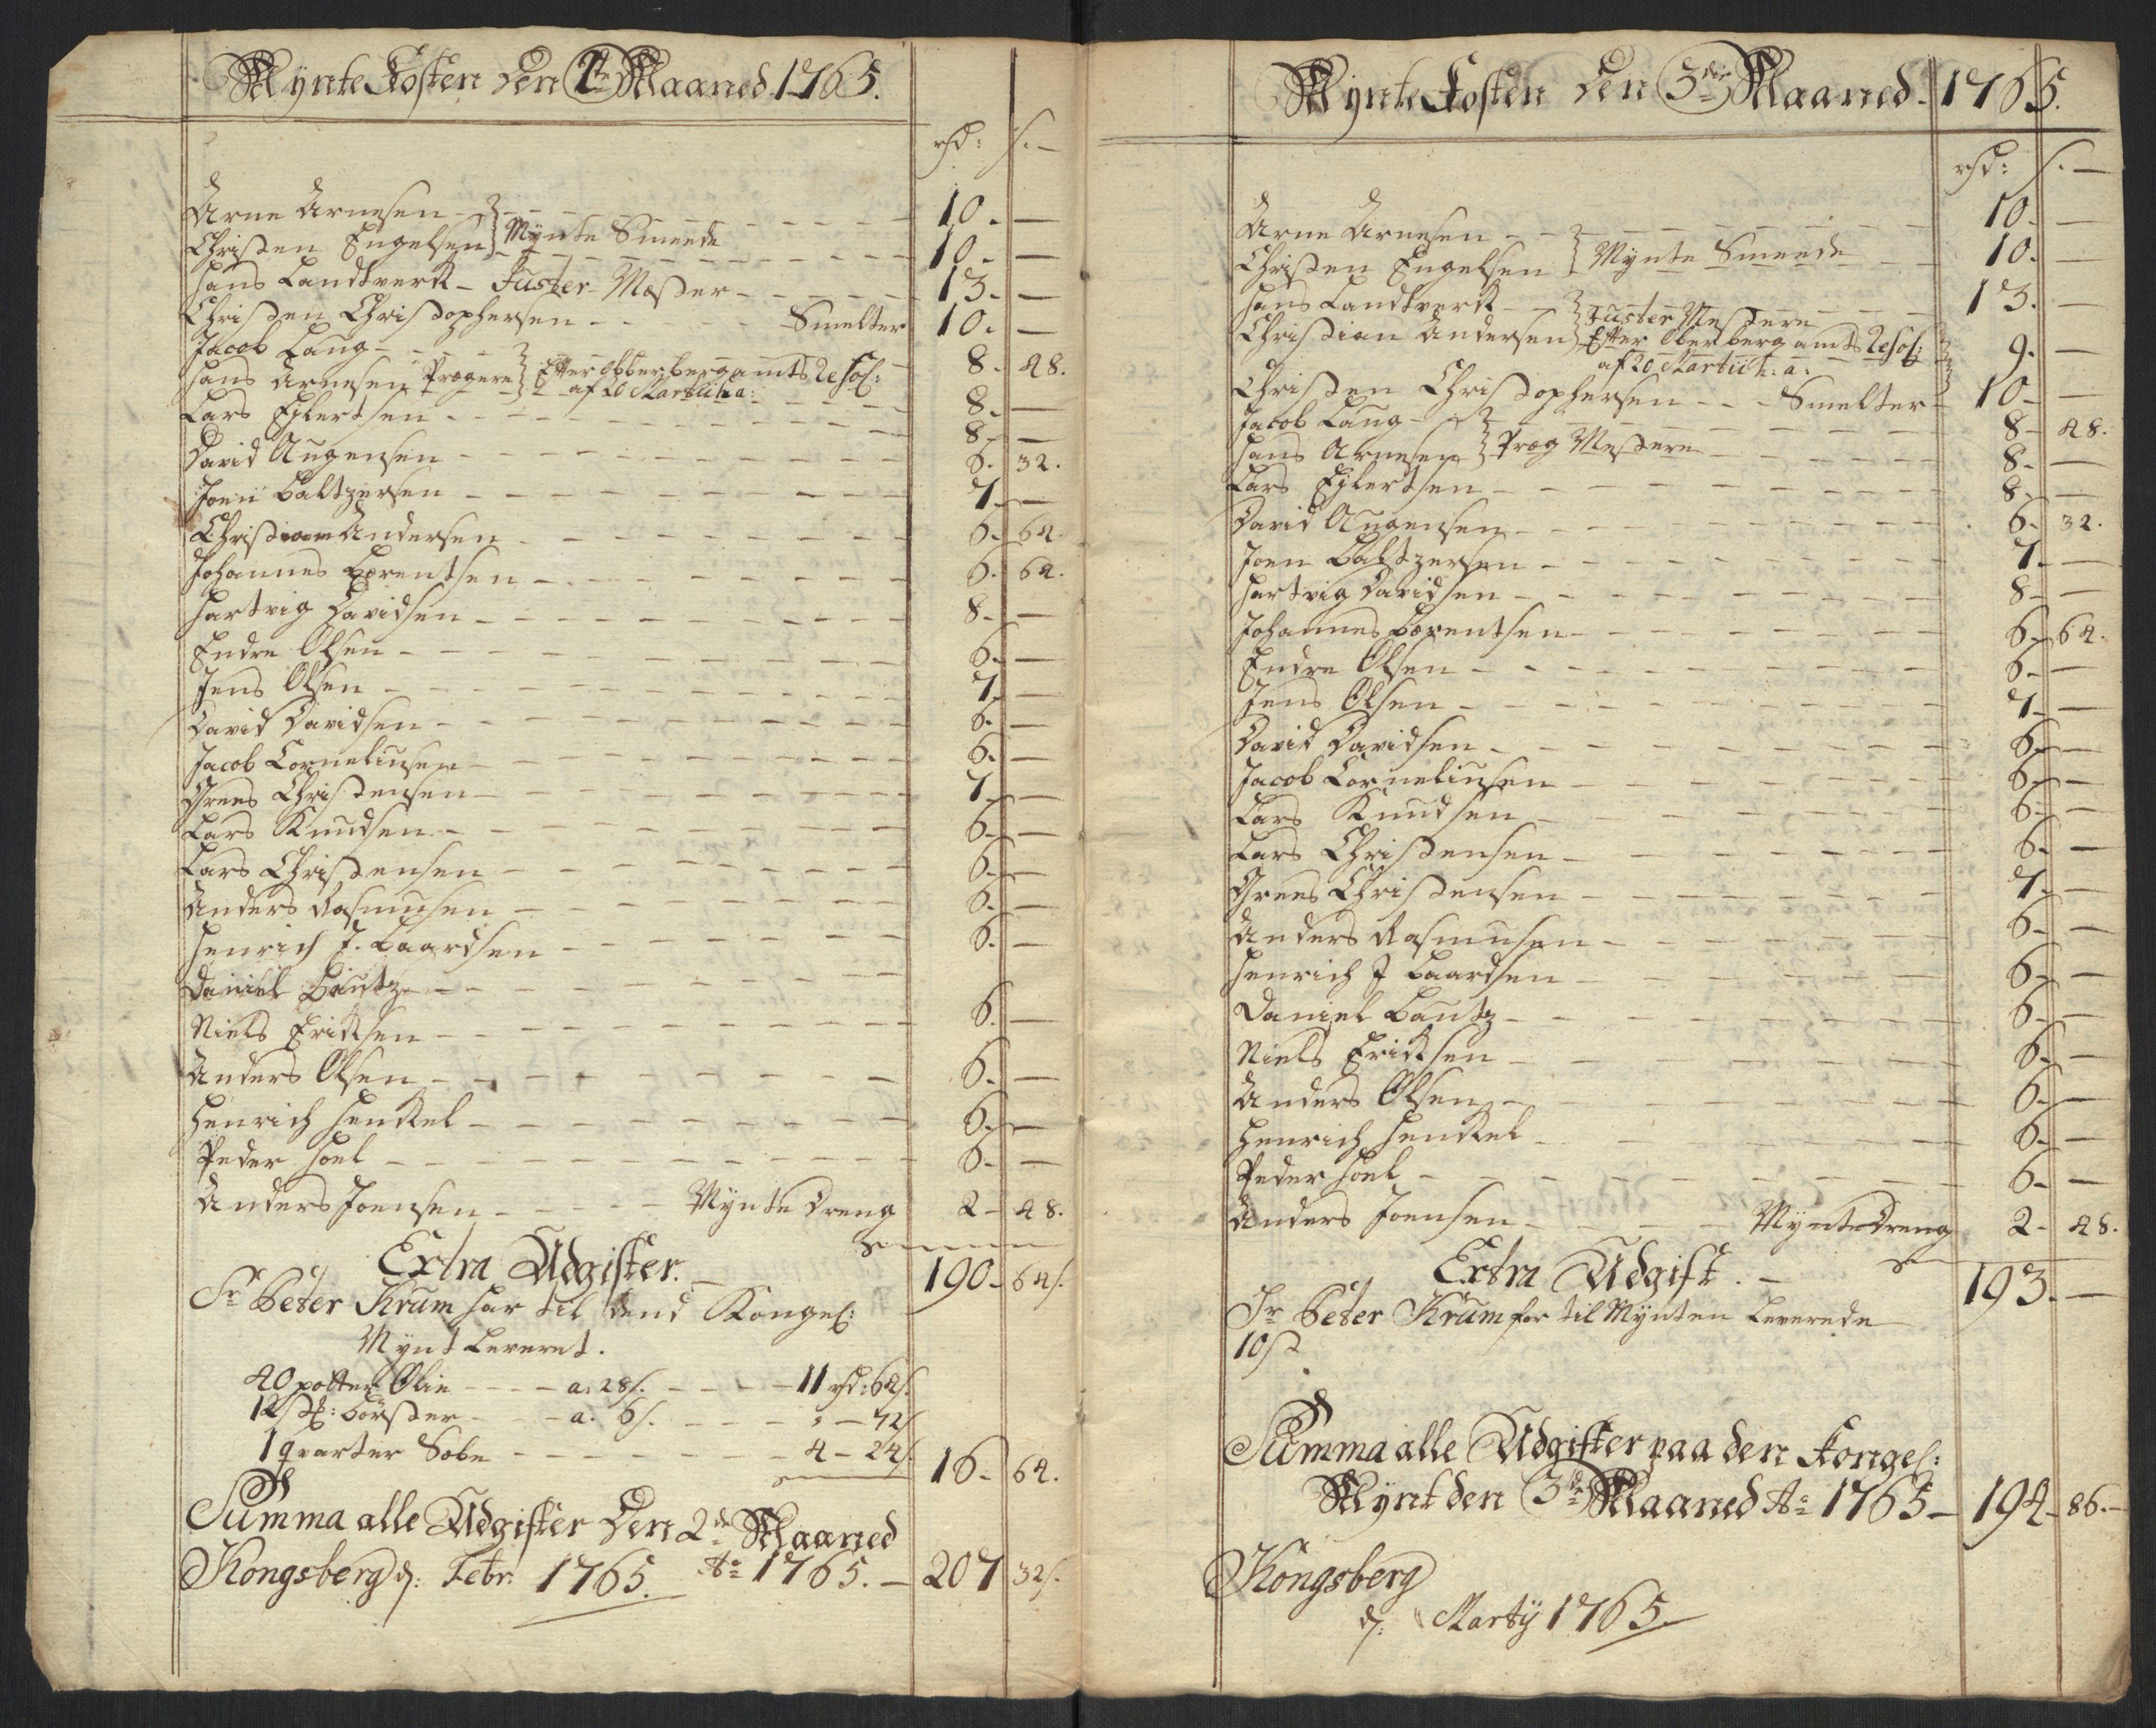 Mynte Kosten den 2de Maaned 1765.
rd: s.
Arne Arnesen - 10. —
Christen Engelsen } Mynte Smeede 10. —
Hans Landtverk - Juster-Mester - 13. —
Christen Christophersen - Smelter 10. —
Jacob Lang - 8. 48.
Hans Arnesen Prægere } Efter Obberbergamts Resol: af 20 Martii h: a: 8. —
Lars Eylertsen - 8. —
David Augensen - 6. 32.
Joen Baltzersen - 7. —
Christian Andersen - 6. 64.
Johannes Børentsen - 6. 64.
Hartvig Davidsen - 8. —
Endre Olsen - 6. —
Jens Olsen - 7. —
David Davidsen - 6. —
Jacob Corneliusen - 6. —
Grees Christensen - 7. —
Lars Knudsen - 6. —
Lars Christensen - 6. —
Anders Rasmusen - 6. —
Henrich J. Baardsen - 6. —
Daniel Bautz -
Niels Eriksen - 6. —
Anders Olsen - 6. —
Henrich Henkel - 6. —
Peder Hoel - 6. —
Anders Joensen - Mynte Dreng 2 - 48.
Extra Udgifter. 190 - 64 s.
Sr Peter Krum har til dend Kongel:
Mynt Leveret.
40 potter Olie - a. 28 s. - 11 rd: 64 s.
12 st: börster - a. 6 s. - " - 72 s.
1 qvarter Sobe - 4 - 24 s. 16. 64.
Summa alle Udgifter den 2de Maaned
Kongsberg d: Febr: 1765. Ao 1765. — 207 32 s.
Mynte Kosten den 3die Maaned 1765.
rd: s.
Arne Arnesen - 10. —
Christen Engelsen } Mynte Smeede 10. —
Hans Landtverk - } Juster Mestere 13. —
Christian Andersen } Efter Oberbergamts Resol:
af 20 Martii h: a: 9. —
Christen Christophersen - Smelter - 10 —
Jacob Lang - 8 - 48.
Hans Arnesen } Præg Mestere 8. —
Lars Eylertsen - 8. —
David Augensen - 6. 32.
Joen Baltzersen - 7. —
Hartvig Davidsen - 8 —
Johannes Børentsen - 6. 64.
Endre Olsen - 6. —
Jens Olsen - 7. —
David Davidsen - 6. —
Jacob Corneliusen - 6. —
Lars Knudsen - 6. —
Lars Christensen - 6. —
Grees Christensen - 7. —
Anders Rasmusen - 6. —
Henrich J Baardsen - 6. —
Daniel Bautz - 6. —
Niels Eriksen - 6. —
Anders Olsen - 6. —
Henrich Henkel - 6. —
Peder Hoel - 6. —
Anders Joensen - Mynte Dreng 2 - 48.
Extra Udgift. — 193. —
Sr Peter Krum for til Mynten Leverede
Summa alle Udgifter paa den Kongel:
Mynt den 3de Maaned Ao 1765 — 194 - 86. —
Kongsberg
d: Martij 1765.